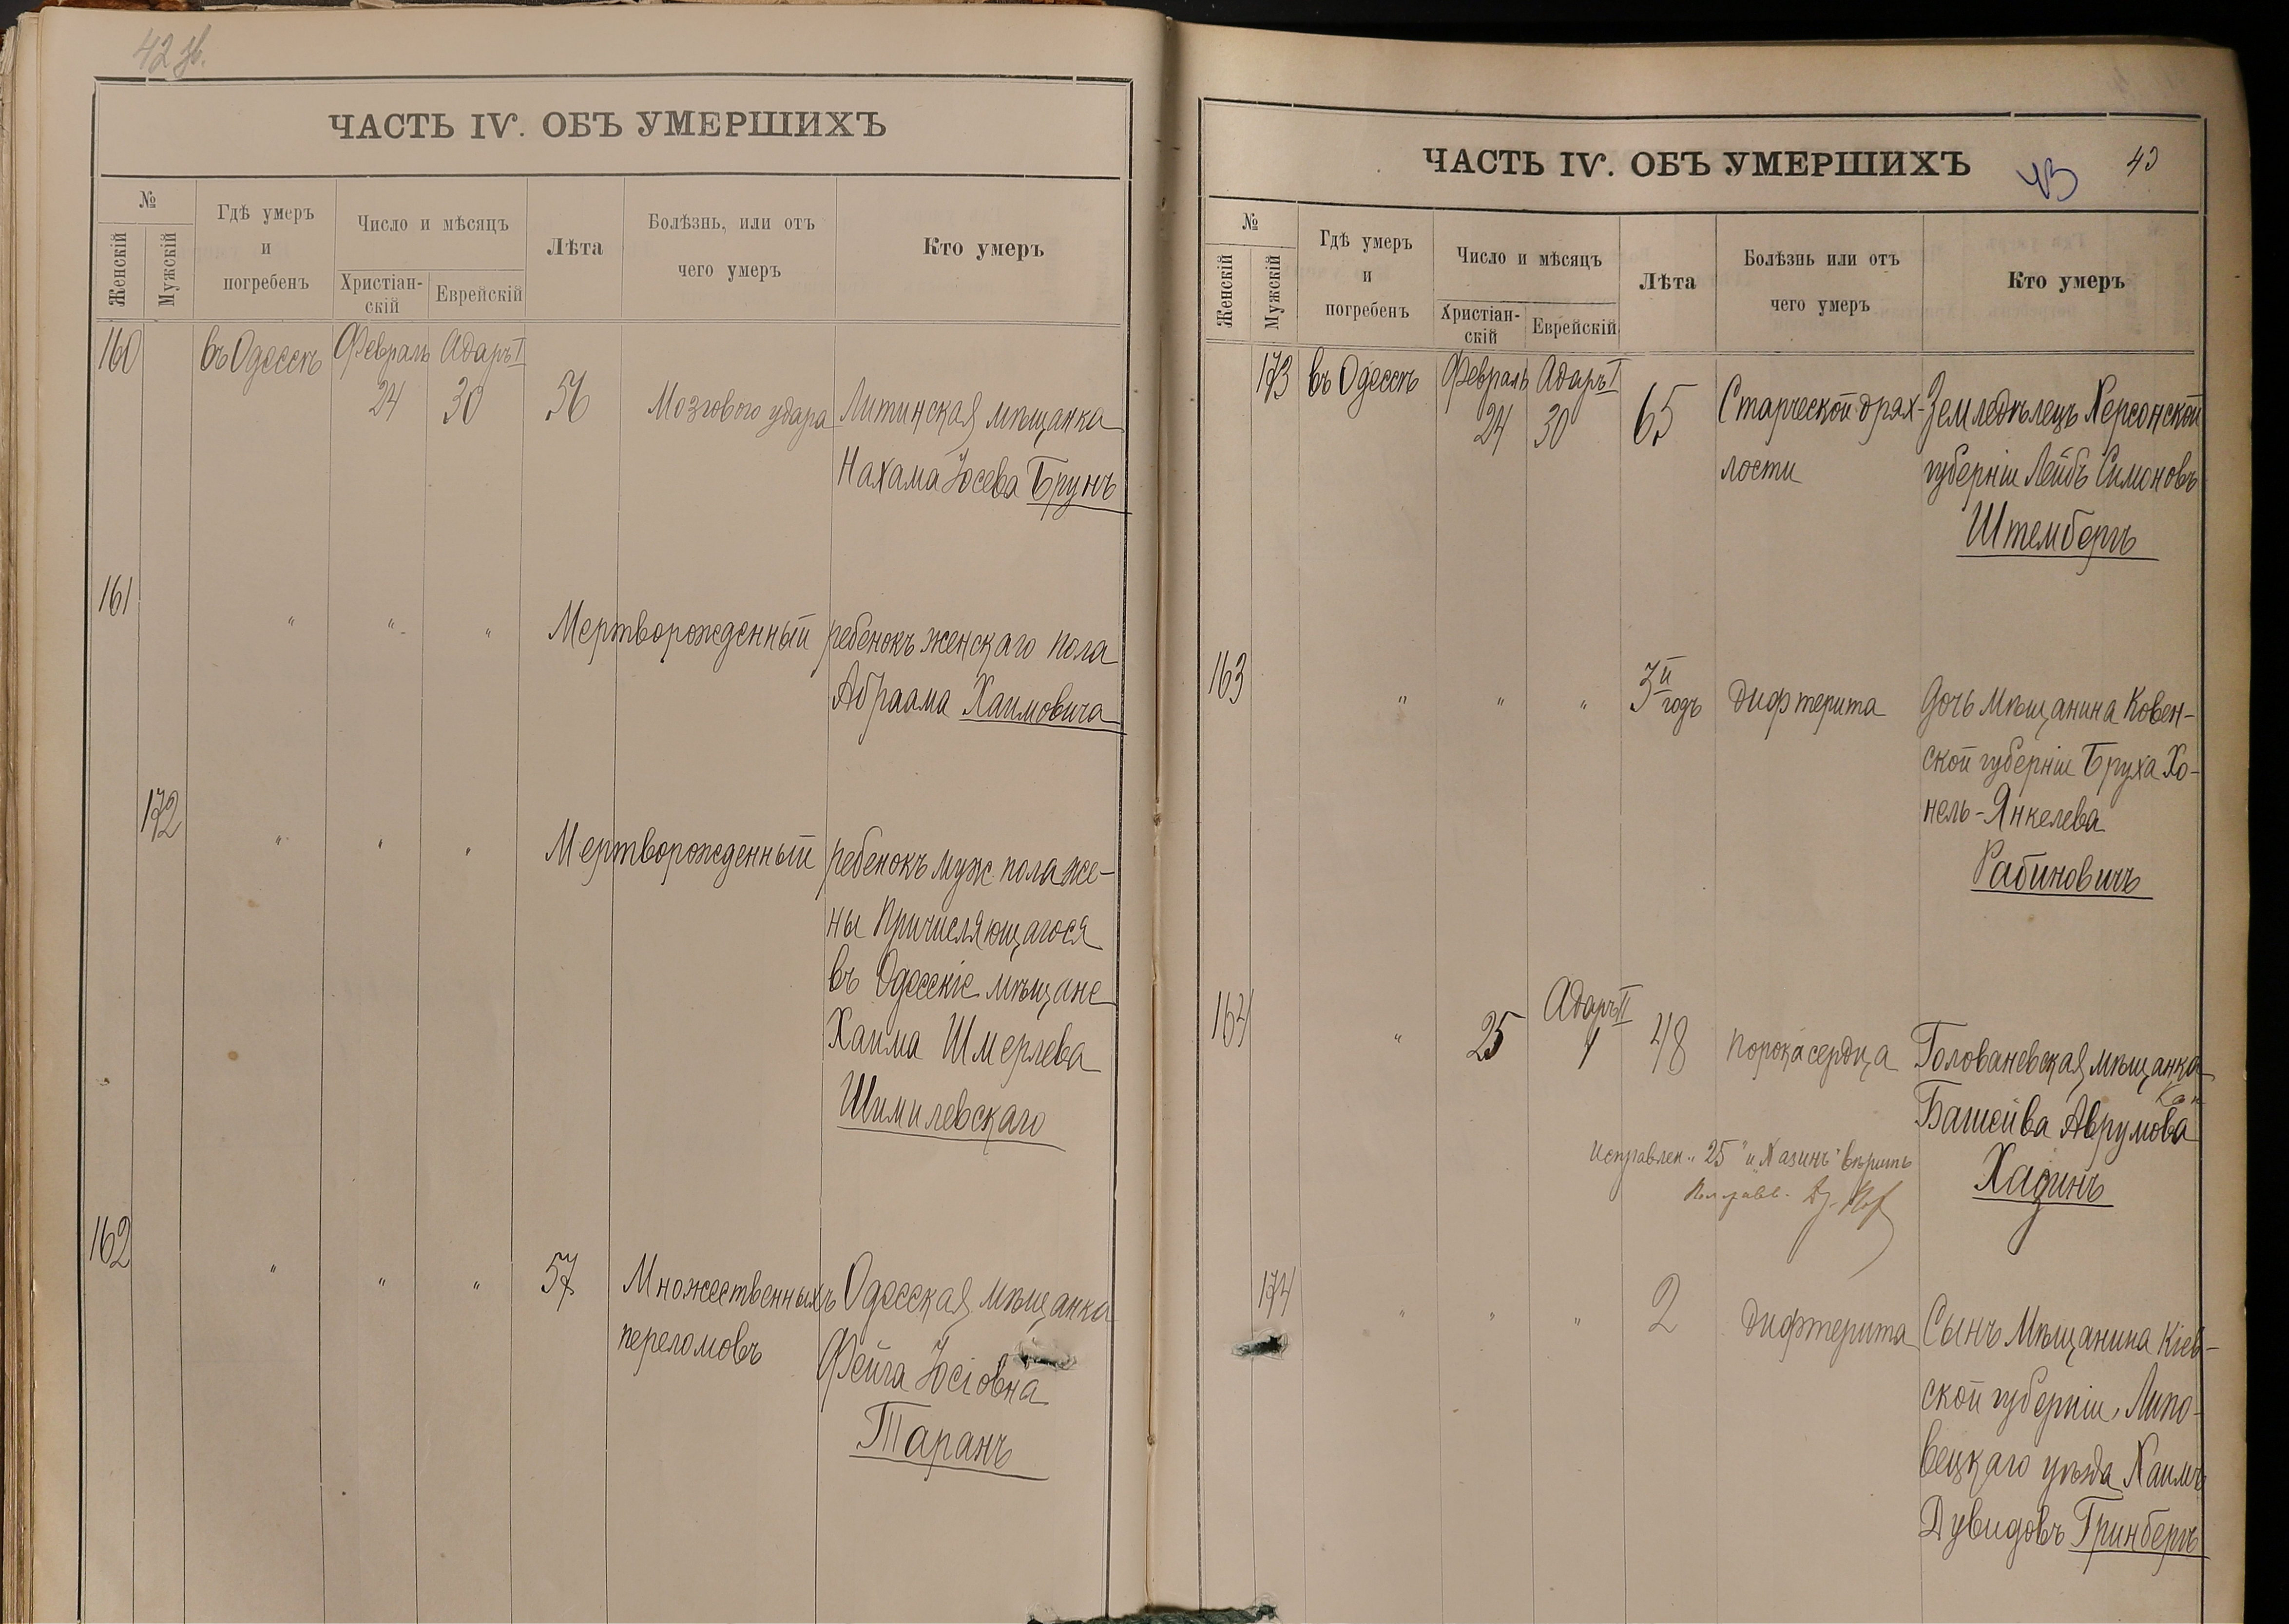 42 зв.
ЧАСТЬ IV. ОБЪ УМЕРШИХЪ
№
Женскій
Мужскій
Гдѣ умеръ
и
погребенъ
Число и мѣсяцъ
Христіан-
скій
Еврейскій
Лѣта
Болѣзнь, или отъ
чего умеръ
Кто умеръ
160 въ Одессѣ Февраль Адаръ I
24 30 56 Мозгового удара Литинская мѣщанка
Нахама Іосева Брунъ
161
" " " Мертворожденный ребенокъ женскаго пола
Абраама Хаимовича
172
" " " Мертворожденный ребенокъ муж. пола же-
ны причисляющагося
въ Одесскіе мѣщане
Хаима Шмерлева
Шимилевскаго
162
" " " 57 Множественныхъ Одесская мѣщанка
переломовъ Фейга Іосіовна
Таранъ
43
43
ЧАСТЬ IV. ОБЪ УМЕРШИХЪ
№
Женскій
Мужскій
Гдѣ умеръ
и
погребенъ
Число и мѣсяцъ
Христіан-
скій
Еврейскій
Лѣта
Болѣзнь или отъ
чего умеръ
Кто умеръ
173 въ Одессѣ Февраль Адаръ I
24 30 65 Старческой дрях- Земледѣлецъ Херсонской
лости губерніи Лейбъ Симоновъ
Штембергъ
163
" " " 3й годъ Дифтерита Дочь мѣщанина Ковен-
ской губерніи Бруха Хо-
нель-Янкелева
Рабиновичъ
164 Адаръ II
" 25 1 48 Порока сердца Голованевская мѣщанка
Башейва Аврумова
Исправлен. "25" и "Хазинъ" вѣрить
Хазинъ
174
" " " 2 Дифтерита Сынъ мѣщанина Кіев-
ской губерніи, Липо-
вецкаго уѣзда Хаимъ
Дувидовъ Гринбергъ